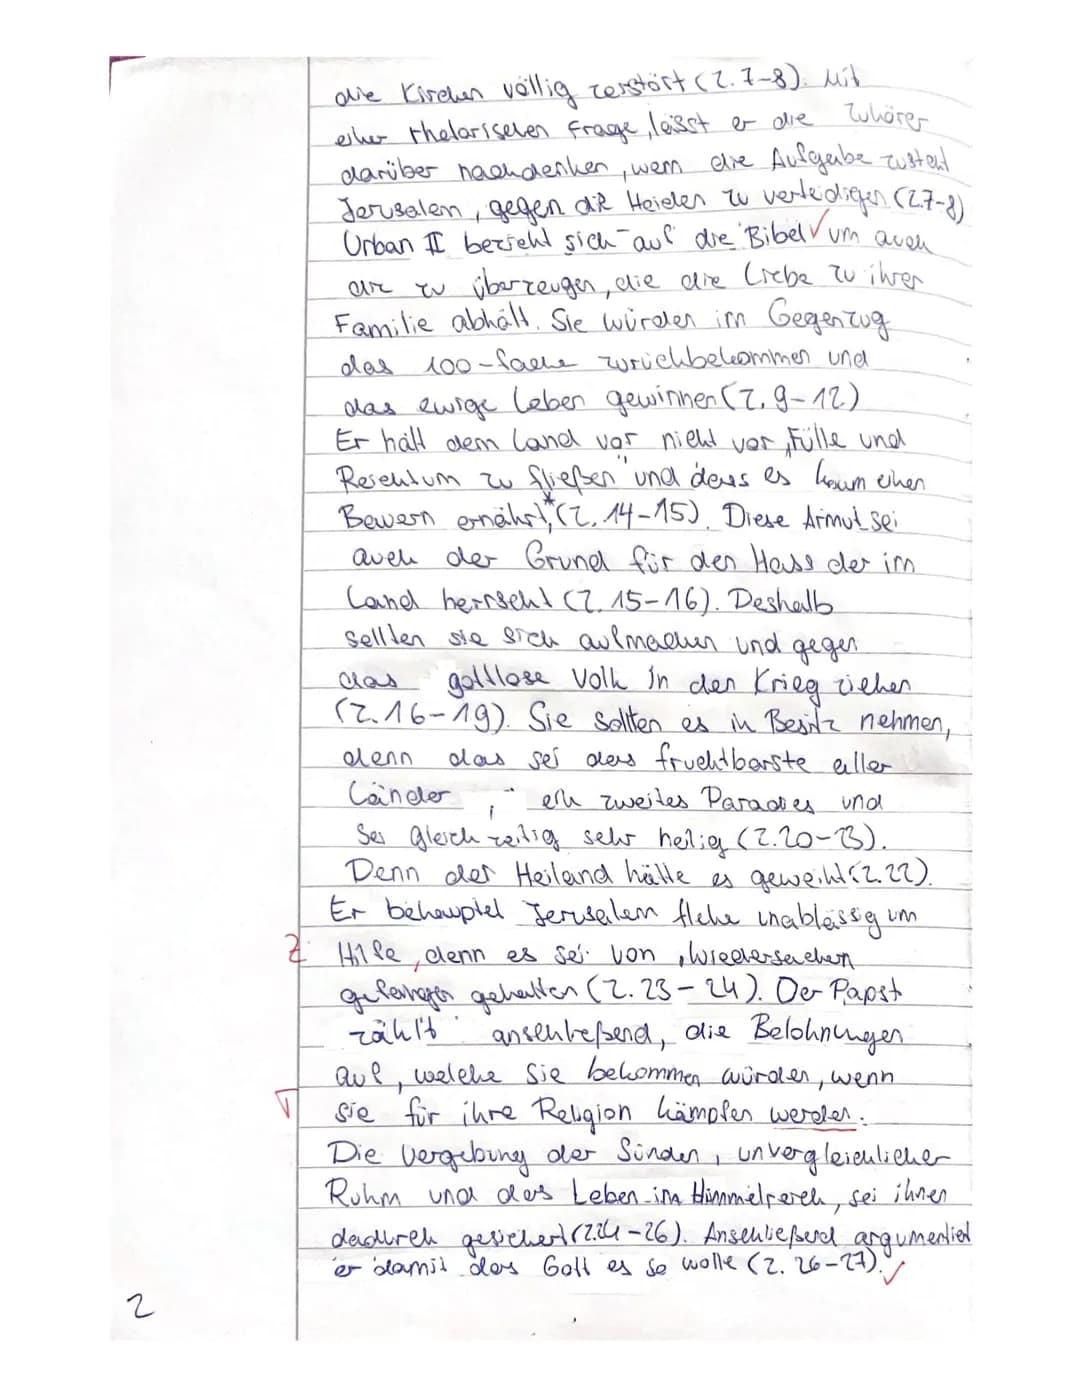 die Kirchen völlig zerstört (Z. 7-8). Mit
einer rhetorischen Frage, lässt er die Zuhörer
darüber nachdenken, wem die Aufgabe zusteht
Jerusalem, gegen die Heiden zu verteidigen (Z.7-8)
Urban II bezieht sich auf die Bibel √ um auch
die zu überzeugen, die die Liebe zu ihrer
Familie abhält. Sie würden im Gegenzug
das 100-fache zurückbekommen und
das ewige Leben gewinnen (Z. 9-12)
Er hält dem Land vor nicht vor „Fülle und
Reichtum zu fließen" und dass es kaum einen
Bewern ernährt,* (Z. 14-15). Diese Armut sei
auch der Grund für den Hass der im
Land herrscht (Z. 15-16). Deshalb
sollten sie sich aufmachen und gegen
das gottlose Volk in den Krieg ziehen
(Z. 16-19). Sie sollten es in Besitz nehmen,
denn das sei das fruchtbarste aller
Länder, ein zweites Paradies und
sei gleichzeitig sehr heilig (Z. 20-23).
Denn der Heiland hätte es geweiht (Z. 22).
Er behauptet Jerusalem flehe unablässig um
Z Hilfe, denn es sei von „Wiedersachern
gefangen gehalten (Z. 23-24). Der Papst
zählt anschließend, die Belohnungen
auf, welche sie bekommen würden, wenn
T sie für ihre Religion kämpfen werden:
Die Vergebung der Sünden, unvergleichlicher
Ruhm und das Leben im Himmelreich, sei ihnen
dadurch gesichert (Z.24-26). Anschließend argumentiert
er damit das Gott es so wolle (Z. 26-27). √
2